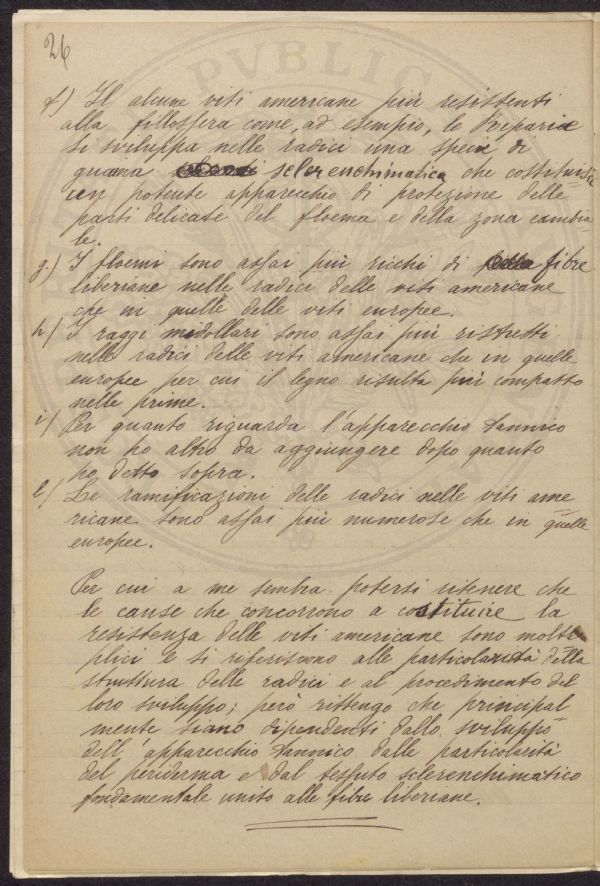 26
f) Il alcune viti americane più resistenti
alla fillossera come, ad esempio, le Riparie
si sviluppa nelle radici una specie di
guaina sclerenchimatica che costituisce
un potente apparecchio di protezione delle
parti delicate del floema e della zona cambia=
le.
g.) I floemi sono assai più ricchi di fibre
liberiane nelle radici delle viti americane
che in quelle delle viti europee.
h) I raggi midollari sono assai più ristretti
nelle radici delle viti americane che in quelle
europee per cui il legno risulta più compatto
nelle prime.
i) Per quanto riguarda l'apparecchio tannico
non ho altro da aggiungere dopo quanto
ho detto sopra.
l) Le ramificazioni delle radici nelle viti ame=
ricane sono assai più numerose che in quelle
europee.
Per cui a me sembra potersi ritenere che
le cause che concorrono a costituire la
resistenza delle viti americane sono molte=
plici e si riferiscono alle particolarità della
struttura delle radici e al procedimento del
loro sviluppo; però rittengo che principal=
mente siano dipendenti dallo sviluppo
dell'apparecchio tannico dalle particolarità
del periderma e dal tessuto sclerenchimatico
fondamentale unito alle fibre liberiane.
PVBLIC